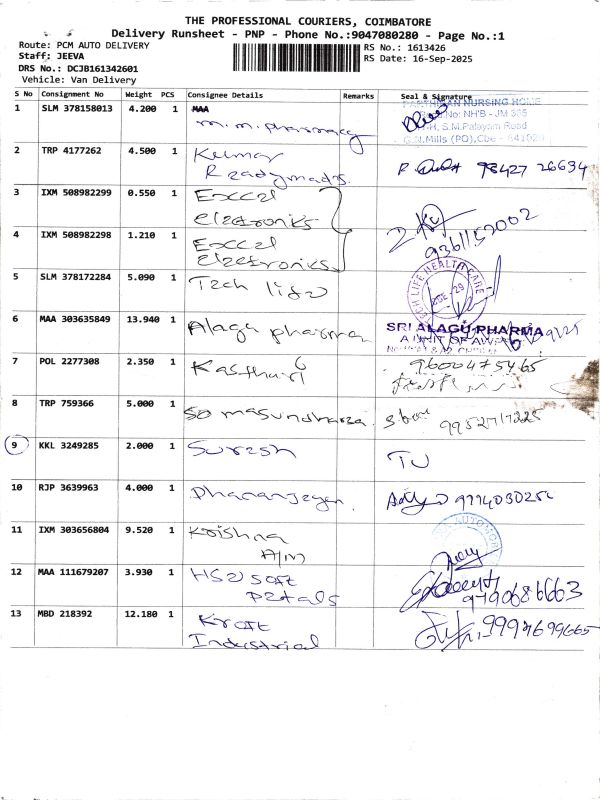 THE PROFESSIONAL COURIERS, COIMBATORE
Delivery Runsheet - PNP - Phone No.:9047080280 - Page No.:1
Route: PCM AUTO DELIVERY
Staff: JEEVA
DRS No.: DCJB161342601
Vehicle: Van Delivery
RS No.: 1613426
RS Date: 16-Sep-2025
S No Consignment No Weight PCS Consignee Details Remarks Seal & Signature
1 SLM 378158013 4.200 1 MAA
m.m.pharmacy
NURSING HOME
No: NH'B - JM 365
S.M.Palayam Road
G.N.Mills (PO), Cbe - 641029
2 TRP 4177262 4.500 1 Kumar
Readymads. 98427 26694
3 IXM 508982299 0.550 1 Excel
eleztroniks
4 IXM 508982298 1.210 1 Excel
eleztroniks 9361152002
5 SLM 378172284 5.090 1 Tech life
TECH LIFE HEALTH CARE
6 MAA 303635849 13.940 1 Alagu pharma
SRI ALAGU PHARMA
A UNIT OF
7 POL 2277308 2.350 1 Kasthuri 9600475465
8 TRP 759366 5.000 1 So masundhara.
9 KKL 3249285 2.000 1 Suresh TU
10 RJP 3639963 4.000 1 Dhananjeyan.
11 IXM 303656804 9.520 1 Krishna
A/m
12 MAA 111679207 3.930 1 HS2 soft
Petals 9790686663
13 MBD 218392 12.180 1 Kraft
Industrial 9994699665